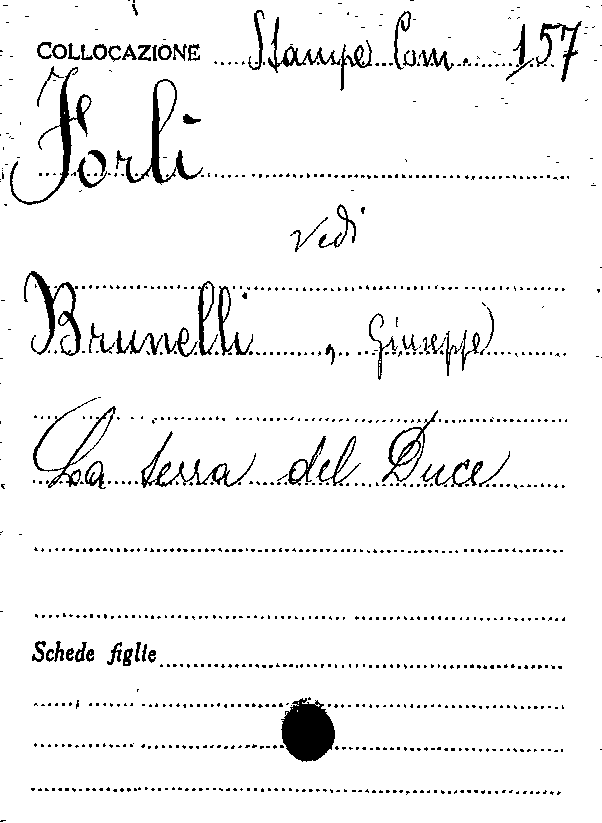 COLLOCAZIONE Stampe Com. 157
Forlì
vedi
Brunelli, Giuseppe
La terra del Duce
Schede figlie